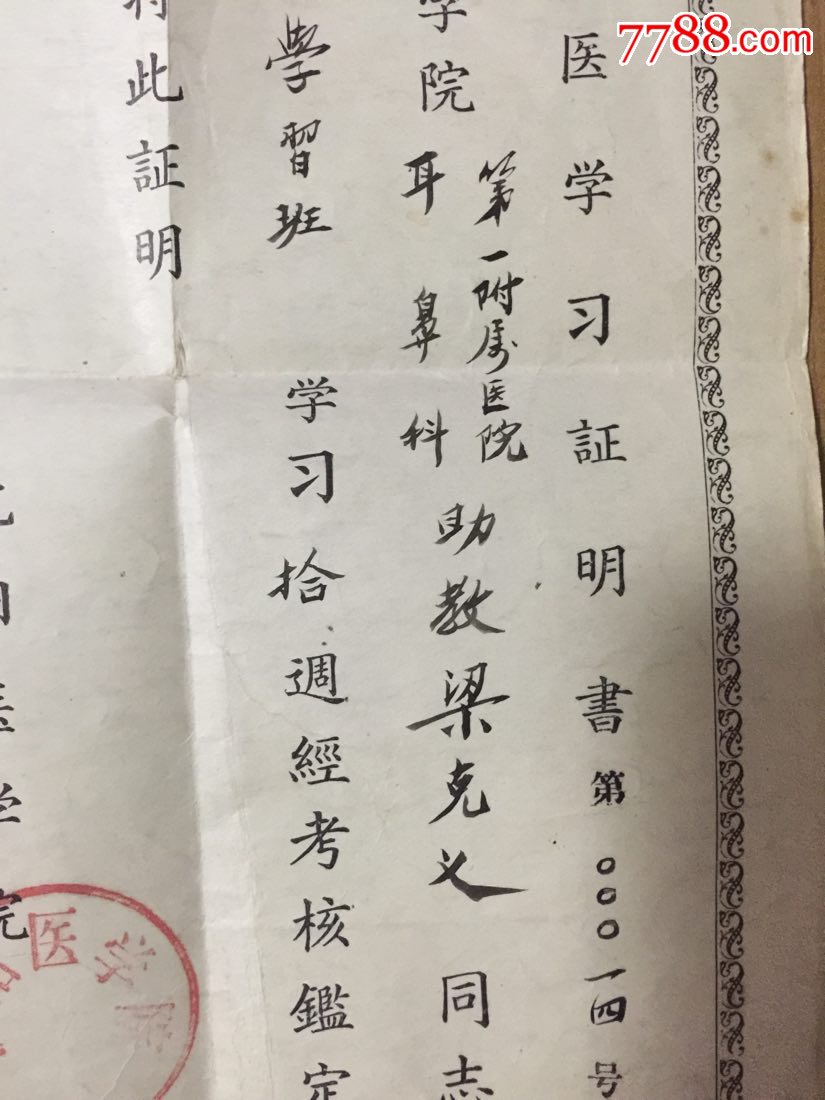 7788.com
医学习証明書第〇〇〇一四号
第一附属医院
学院耳鼻科助教梁克义同志
學習班学习拾週經考核鑑定
此証明
医学院
医学院